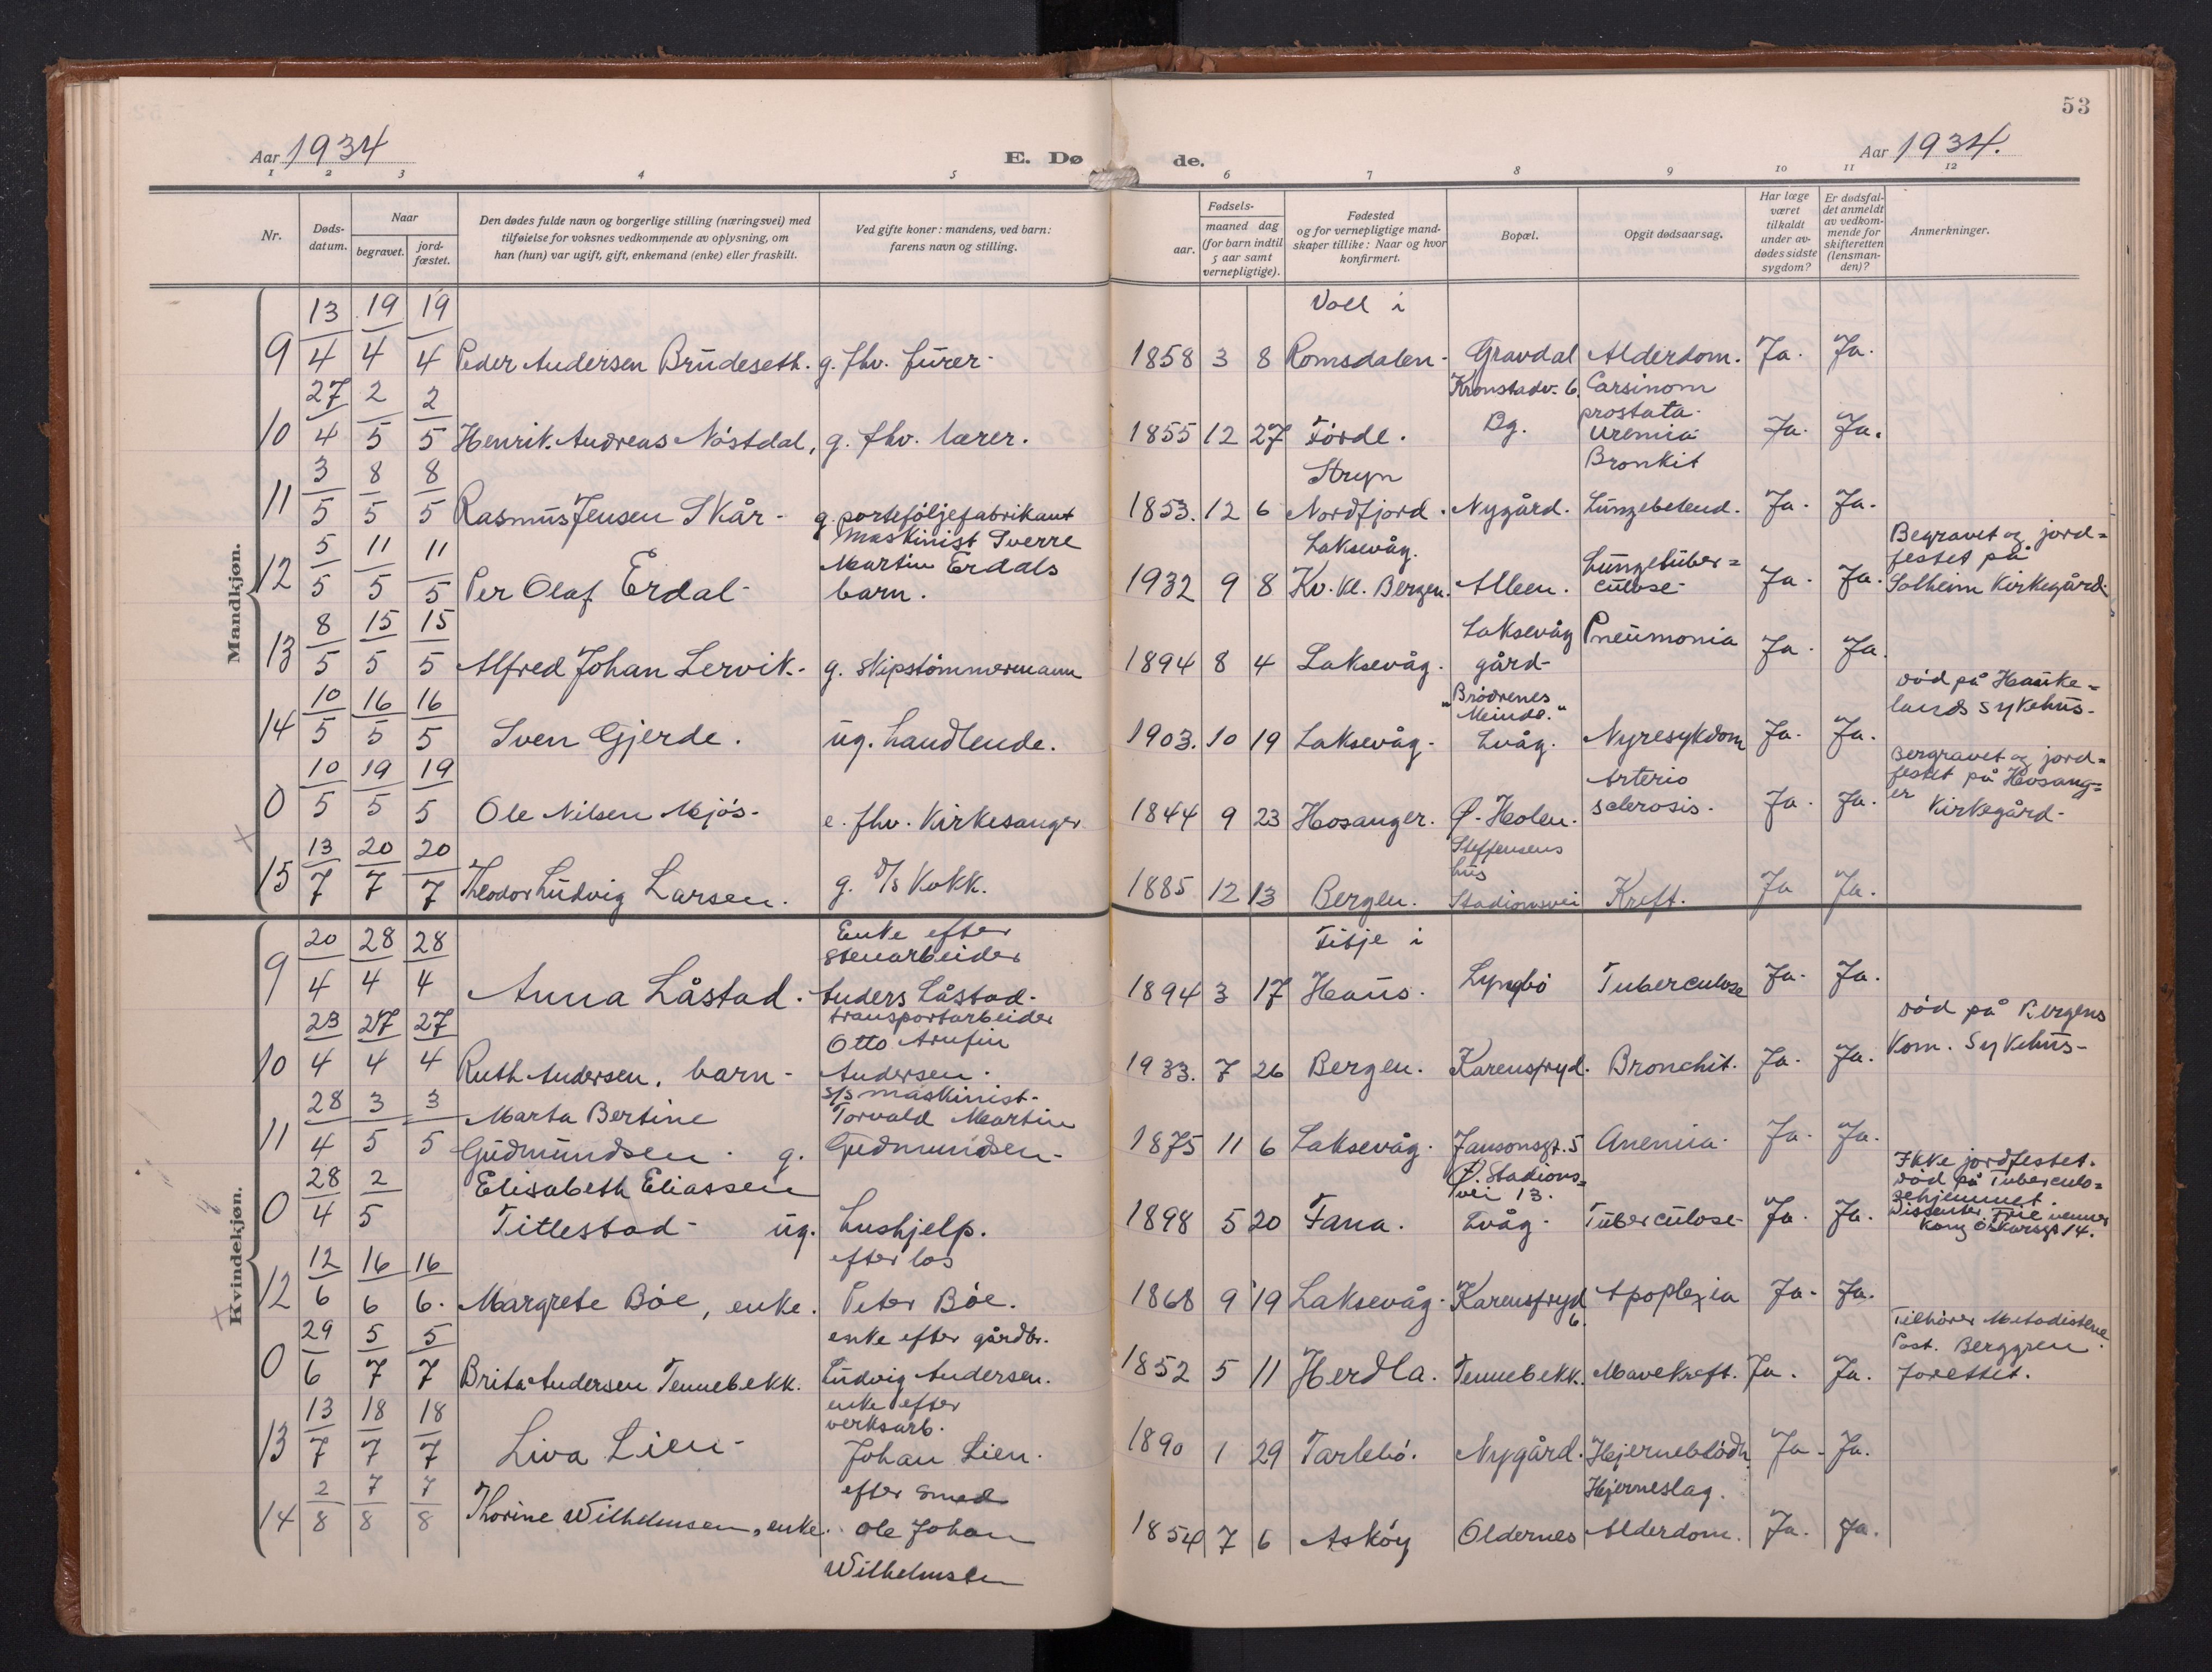 53
Aar 1934
E. Dø
de.
Aar 1934.
1 2 3 4 5 6 7 8 9 10 11 12
Nr.
Døds-
datum.
Naar
begravet.
jord-
fæstet.
Den dødes fulde navn og borgerlige stilling (næringsvei) med
tilføielse for voksnes vedkommende av oplysning, om
han (hun) var ugift, gift, enkemand (enke) eller fraskilt.
Ved gifte koner: mandens, ved barn:
farens navn og stilling.
Fødsels-
aar.
maaned dag
(for barn indtil
5 aar samt
vernepligtige).
Fødested
og for vernepligtige mand-
skaper tillike: Naar og hvor
konfirmert.
Bopæl.
Opgit dødsaarsag.
Har læge
været
tilkaldt
under av-
dødes sidste
sygdom?
Er dødsfal-
det anmeldt
av vedkom-
mende for
skifteretten
(lensman-
den)?
Anmerkninger.
Mandkjøn.
9 13/4 19/4 19/4 Peder Andersen Brudeseth. g. fhv. furer- 1858 3 8 Voll i
Romsdalen- Gravdal Alderdom. Ja. Ja.
10 27/4 2/5 2/5 Henrik Andreas Nøstdal, g. fhv. lærer. 1855 12 27 Førde. Kronstadv. 6.
Bg. Carsinom
prostata-
Uremia- Ja. Ja.
11 3/5 8/5 8/5 Rasmus Jensen Skår- g. porteføljefabrikant 1853. 12 6 Stryn
Nordfjord. Nygård. Bronkit
Lungebetend. Ja. Ja.
12 5/5 11/5 11/5 Per Olaf Erdal- maskinist Sverre
Martin Erdals
barn. 1932 9 8 Laksevåg.
Kv. kl. Bergen. Alleen. Lungetuber=
culose- Ja. Ja. Begravet og jord=
festet på
Solheim Kirkegård.
13 8/5 15/5 15/5 Alfred Johan Lervik.- g. skipstømmermann 1894 8 4 Laksevåg. Laksevåg
gård- Pneumonia Ja. Ja.
14 10/5 16/5 16/5 Sven Gjerde. ug. handlende. 1903. 10 19 Laksevåg- "Brødrenes
Minde."
Lvåg. Nyresykdom Ja. Ja. død på Hauke=
lands sykehus-
0 10/5 19/5 19/5 Ole Nilsen Mjøs- e. fhv. Kirkesanger. 1844 9 23 Hosanger. Ø. Holen. Arterio
sclerosis. Ja. Ja. Bergravet og jord=
festet på Hosang=
er
Kirkegård-
15 13/7 20/7 20/7 Theodor Ludvig Larsen. g. D/s Kokk. 1885 12 13 Bergen. Steffensens
hus
Stadionsvei Kreft. Ja Ja.
Kvindekjøn.
9 20/4 28/4 28/4 Anna Låstad. Enke efter
stenarbeider
Anders Låstad- 1894 3 17 Titje i
Haus. Lyngbø Tuberculose Ja. Ja.
10 23/4 27/4 27/4 Ruth Andersen. barn- transportarbeider
Otto Arnfin
Andersen. 1933. 7 26 Bergen. Karensfryd. Bronchit. Ja. Ja. død på Bergens
Kom. Sykehus-
11 28/4 3/5 3/5 Marta Bertine
Gudmundsen. g. S/s maskinist-
Torvald Martin
Gudmundsen- 1875 11 6 Laksevåg. Jansonsgt. 5 Anemia. Ja. Ja.
0 28/4 2/5 Elisabeth Eliassen
Titlestad- ug. hushjelp. 1898 5 20 Fana. Ø. Stadions=
vei 13.
Lvåg. Tuberculose- Ja. Ja. Ikke jordfestet.
død på Tuberculo=
sehjemmet.
Dissenter. Frie venner
Kong Oskarsgt 14.
12 12/6 16/6 16/6. Margrete Bøe, enke. efter los
Peter Bøe. 1868 9 19 Laksevåg- Karensfryd
6. Apoplexia Ja. Ja.
0 29/6 5/7 5/7 Brita Andersen Tennebekk. enke efter gårdbr.
Ludvig Andersen. 1852 5 11 Herdla. Tennebekk. Mavekreft. Ja. Ja. Tilhører Metodistene.
Past. Berggren
forettet.
13 13/7 18/7 18/7 Liva Lien- enke efter
verksarb.
Johan Lien. 1890 1 29 Tarlebø. Nygård. Hjerneblødn. Ja- Ja.
14 2/8 7/8 7/8 Thorine Wilhelmsen, enke. efter smed
Ole Johan
Wilhelmsen 1854 7 6 Askøy Oldernes Hjerneslag.
Alderdom. Ja. Ja.